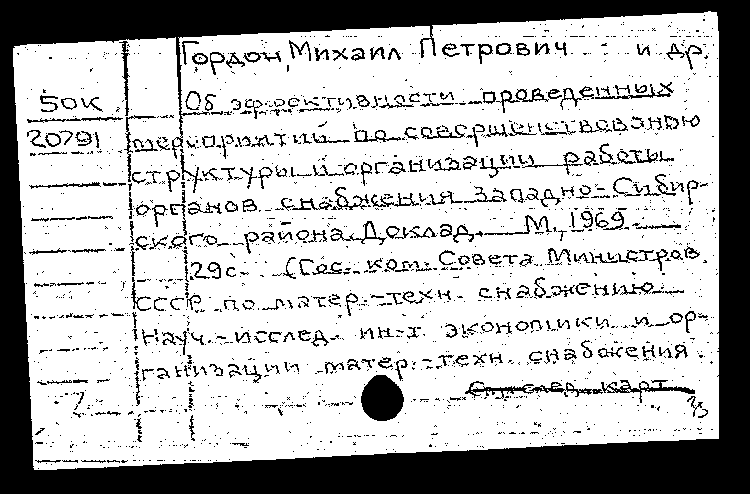 Гордон, Михаил Петрович и др.
50К Об эффективности проведенных
20791 мероприятий по совершенствованию
структуры и организации работы
органов снабжения Западно-Сибир-
ского района. Доклад. М., 1969.
29с. (Гос. ком. Совета Министров
СССР по матер.-техн. снабжению
Науч.-исслед. ин-т экономики и ор-
ганизации матер.-техн. снабжения.
См. след. карт